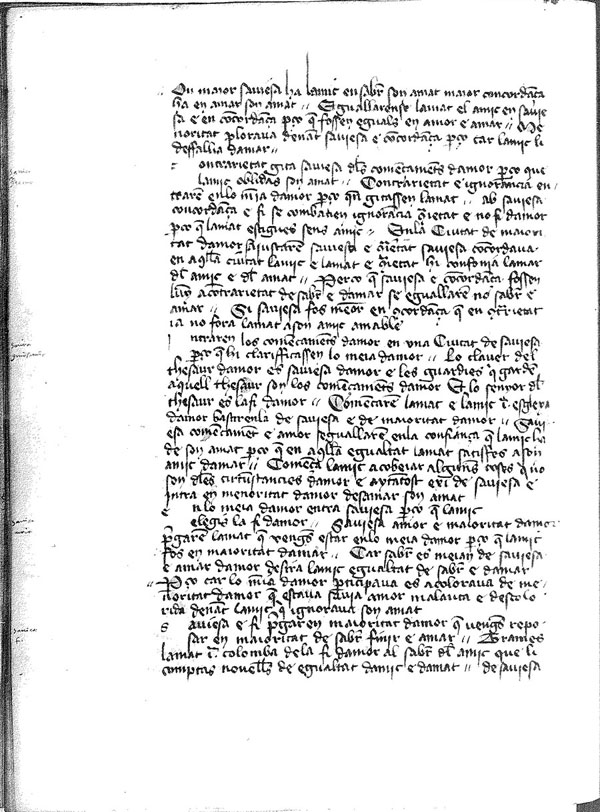 On maior saviesa ha lamic en sabr son amat maior concordāça
ha en amar son amat // Eguallarense lamat el amic en savie
sa e en cōcordāça pço q̄ fossen eguals en amor e amar // Me
noritat plorava denāt saviesa e cōcordāça pço car lamic li
deffallia damar //
ontrarietat gita saviesa dls comēcamēts damor pço que
lamic oblidas son amat // Contrarietat e ignorancia en
traren en lo mja damor pço qn gitassen lamat // ab saviesa
concordāça e fi se combatien ignorācia ɔ̄rietat e no fi damor
pço q̄ lamat estigues sens amic // En la Ciutat de maiori
tat damor sajustaren saviesa e ɔ̄rietat saviesa cōcordava
en aq̄lla ciutat lamic e lamat e ɔ̄rietat hi confonia lamar
dl amic e dl amat // Perço q̄ saviesa e cōcordāça fossen
luny a cōtrarietat de sabr e damar se eguallarē no sabr e
amar // Si saviesa fos menor en ɔcordāça q̄ en ɔtrietat
ia no fora lamat a son amic amable
ntraren los comēcamēts damor en una Ciutat de saviesa
pço q̄ hi clarifficassen lo meia damor // Lo clauer del
thesaur damor es saviesa damor e les guardies q̄ gardē
aquell thesaur son los comēcamēts damor E lo senyor dl
thesaur es la fi damor // Comēcaren lamat e lamic
damor bastrenla de saviesa e de maioritat damor // Savi
esa comēcamēt e amor seguallarē en la confiança q̄ lamic ha
de son amat pço q̄ en aq̄lla egualtat lamat satisfes a son
amic damar // Comēça lamic a cobeiar algunes coses q̄ no
son dles circūstancies damor e aytātost exi de saviesa e
intra en menoritat damor desamar son amat
E n lo meia damor entra saviesa pço q̄ lamic
elegis la fi damor // Saviesa amor e maioritat damor
pgaren lamat q̄ vengs estar en lo meia damor pço q̄ lamic
fos en maioritat damar // Car sabr es meian de saviesa
e amar damor destra lamic egualtat de sabr e damar
Pço car lo mja damor pticipava es acolorava de me
noritat damor q̄ estava savia amor malauta e descolo
rida denāt lamic q̄ ignorava son amat
S aviesa e fi pgaren maioritat damor q̄ vengs repo
sar en maioritat de sabr e amar // Trames
lamat colomba de la fi damor al sabr dl amic que li
comptas novells de egualtat damic e damat // de saviesa